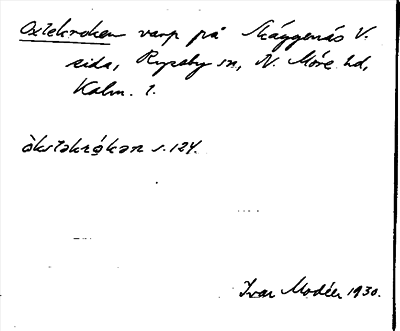 Oxlekroken varp på Skäggenäs V.
sida, Ryssby sn, N. Möre hd,
Kalm. l.
òkstəkrọ́kən s. 124.
Ivar Modéer 1930.